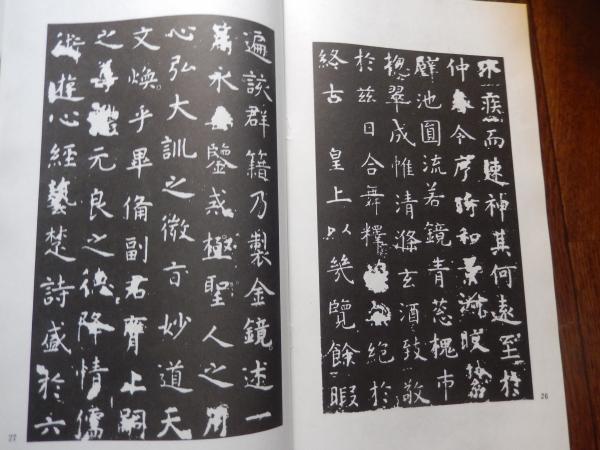 不疾而速神其何遠至於
仲令序時和景淑皎
璧池圓流若鏡青葱槐市
揔翠成帷清滌玄酒致敬
於兹日合舞釋絶於
終古 皇上以幾覽餘暇
26
遍該群籍乃製金鏡述一
篇永鑒戒極聖人之用
心弘大訓之微旨妙道天
文煥乎畢備副君膺上嗣
之元良之德降情儒
術遊心經藝楚詩盛於六
27